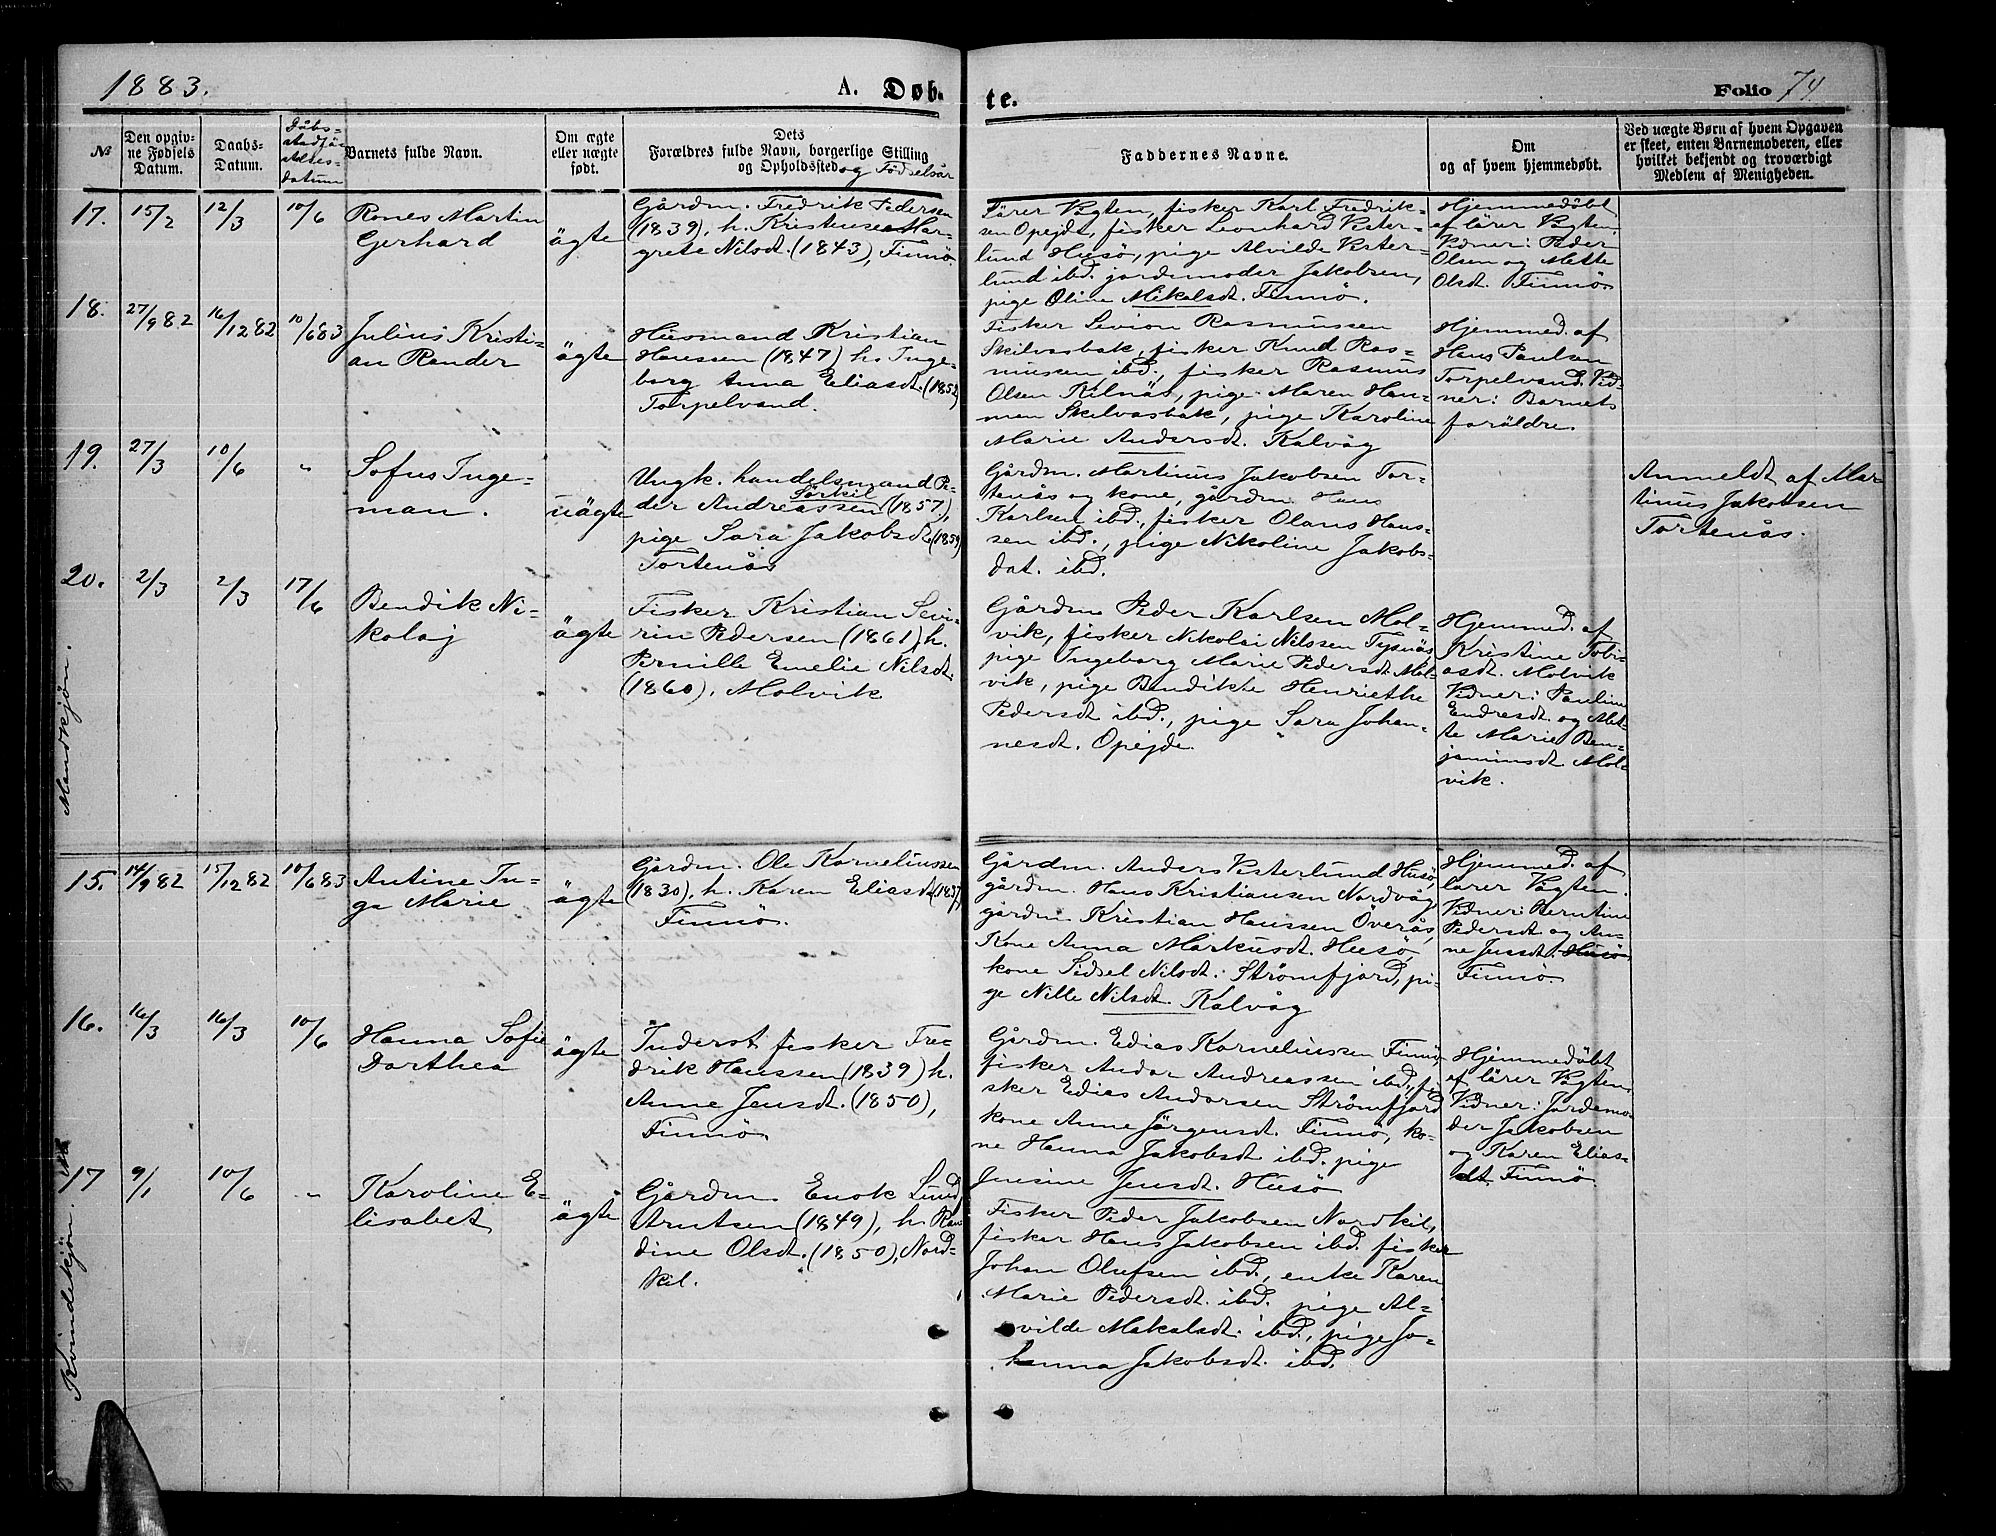 1883.
A. Døb-
te.
Folio 74
№
Den opgiv-
ne Fødsels
Datum.
Daabs-
Datum.
Dåbs-
stadfä-
stelses-
datum
Barnets fulde Navn.
Om ægte
eller uægte
født.
Dets
Forældres fulde Navn, borgerlige Stilling
og Opholdssted og Födselsår
Faddernes Navne.
Om
og af hvem hjemmedøbt.
Ved uægte Børn af hvem Opgaven
er skeet, enten Barnemoderen, eller
hvilket bekjendt og troværdigt
Medlem af Menigheden.
Mandkjön.
17.
15/2
12/3
10/6
Rones Martin
Gerhard
ägte
Gårdm. Fredrik Pedersen
(1839), h. Kristense Mar-
grete Nilsdt. (1843), Finnö.
Lärer Vogten, fisker Karl Fredrik-
sen Opejde, fisker Leonhard Vester-
lund Husö, pige Alvilde Vester-
lund ibd. jordemoder Jakobsen,
pige Oline Mikalsdt. Finnö.
Hjemmedöbt
af lärer Vogten.
Vidner: Peder
Olsen og Mette
Olsdt. Finnö
18.
27/9 82
16/12 82
10/6 83
Julius Kristi-
an Rander
ägte
Husmand Kristian
Hanssen (1847) h. Inge-
borg Anna Eliasdt. (1852)
Torpelvand.
Fisker Sevion Rasmussen
Skilvasbak, fisker Knud Ras-
mussen ibd., fisker Rasmus
Olsen Kilnäs, pige Maren Han-
Skilvasbak, pige Karoline
Marie Andersdt. Kalvåg
Hjemmed. af
Hans Paulsen
Torpelvand. Vid-
ner: Barnets
foräldre
19.
27/3
10/6
"
Sofus Inge-
man.
uägte
Ungk. handelsmand Pe-
der Andreassen Sörkil (1857),
pige Sara Jakobsdt. (1859)
Tortenås
Gårdm. Martinus Jakobsen Tor-
tenås og kone, gårdm. Hans
Karlsen ibd., fisker Olaus Hans-
sen ibd., pige Nikoline Jakobs-
dat. ibd.
Anmeldt af Mar-
tinus Jakobsen
Tortenås.
20.
2/3
2/3
17/6
Bendik Ni-
kolaj
ägte
Fisker Kristian Sevi-
rin Pedersen (1861), h.
Pernille Emelie Nilsdt.
(1860), Molvik
Gårdm. Peder Karlsen Mol-
vik, fisker Nikolai Nilssen Tysnäs,
pige Ingeborg Marie Pedersdt. Mol-
vik, pige Bendikte Henriethe
Pedersdt ibd., pige Sara Johan-
nesdt. Opejde
Hjemmed. af
Kristine Tobi-
asdt. Molvik
Vidner: Pauline
Endresdt. og Met-
te Marie Ben-
jaminsdt. Mol-
vik.
Kvindekjön.
15.
14/9 82
15/12 82
10/6 83
Antine In-
ga Marie
ägte
Gårdm. Ole Korneliussen
(1830), h. Karen Eliasdt. (1837),
Finnö.
Gårdm. Anders Vesterlund Husö,
gårdm. Hans Kristiansen Nordvåg
gårdm. Kristian Hanssen Överås,
Kone Anna Markusdt. Husö,
kone Sidsel Nilsdt. Strömfjord, pi-
ge Nille Nilsdt. Kalvåg
Hjemmed. af
lärer Vogten.
Vidner: Berntine
Pedersdt og An-
ne Jensdt. Husö
Finnö.
16.
16/3
16/3
10/6
Hanna Sofie
Dorthea
ägte
Inderst fisker Fre-
drik Hanssen (1839) h.
Anne Jensdt. (1850),
Finnö
Gårdm. Edias Korneliussen Finnö,
fisker Andor Andreassen ibd., fi-
sker Edias Andorsen Strömfjord
kone Anne Jörgensdt. Finnö, ko-
ne Hanna Jakobsdt ibd. pige
Jensine Jensdt. Husö
Hjemmedöbt
af lärer Vogten
Vidner: Jordemo-
der Jakobsen
og Karen Elias-
dt. Finnö
17
9/1
10/6
"
Karoline E-
lisabet
ägte
Gårdm. Enok Lund
Arntsen (1849), h. Ran-
dine Olsdt. (1850), Nord-
kil.
Fisker Peder Jakobsen Nordkil,
fisker Hans Jakobsen ibd. fisker
Johan Olufsen ibd., enke Karen
Marie Pedersdt. ibd. pige Al-
vilde Mikalsdt. ibd., pige Jo-
hanna Jakobsdt. ibd.